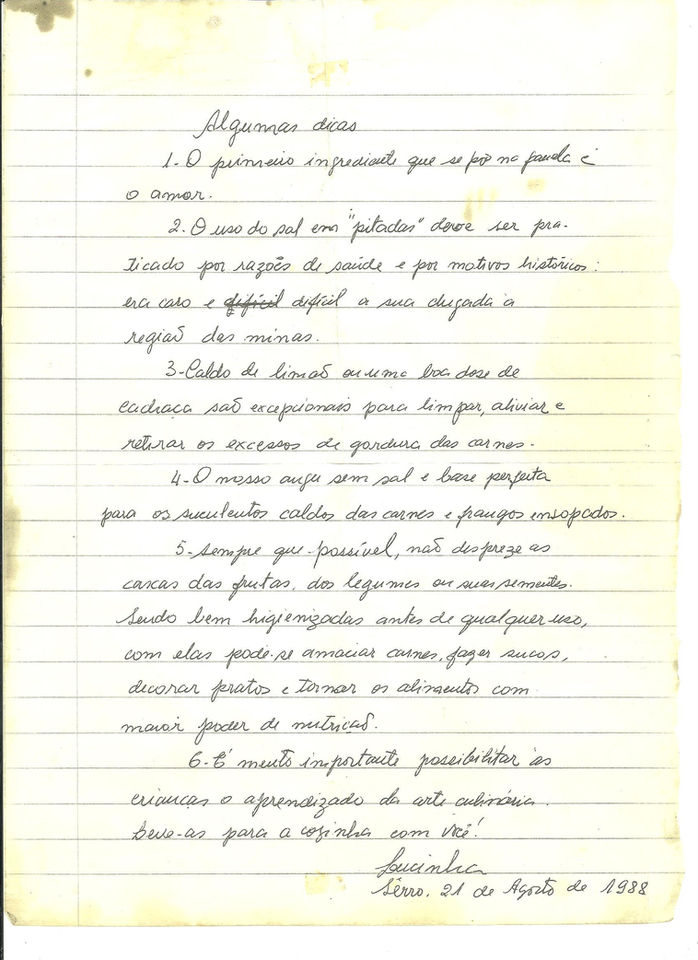 Algumas dicas
1- O primeiro ingrediente que se põe na panela é
o amor.
2. O uso do sal em "pitadas" deve ser pra-
ticado por razões de saúde e por motivos históricos:
era caro e difícil difícil a sua chegada à
região das minas.
3-Caldo de limão ou uma boa dose de
cachaça são excepcionais para limpar, aliviar e
retirar os excessos de gordura das carnes.
4-O nosso angu sem sal é base perfeita
para os suculentos caldos das carnes e frangos ensopados.
5-Sempre que possível, não despreze as
cascas das frutas, dos legumes ou suas sementes.
Sendo bem higienizadas antes de qualquer uso,
com elas pode-se amaciar carnes, fazer sucos,
decorar pratos e tornar os alimentos com
maior poder de nutrição.
6-É muito importante possibilitar às
crianças o aprendizado da arte culinária.
Leve-as para a cozinha com você!
Lucinha
Sêrro, 21 de Agosto de 1988